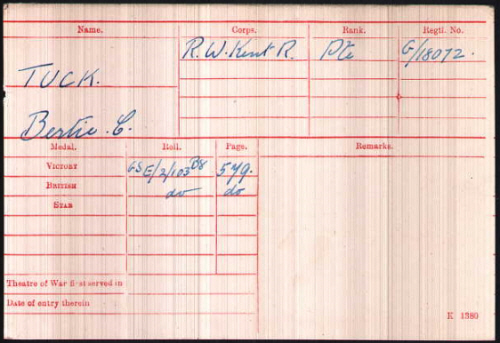 Name. Corps. Rank. Regtl. No.
R.W.Kent R. Pte G/18072.
TUCK.
Bertie.C.
Medal. Roll. Page. Remarks.
VICTORY 579.
BRITISH do do
STAR
Theatre of War first served in
Date of entry therein
K 1380